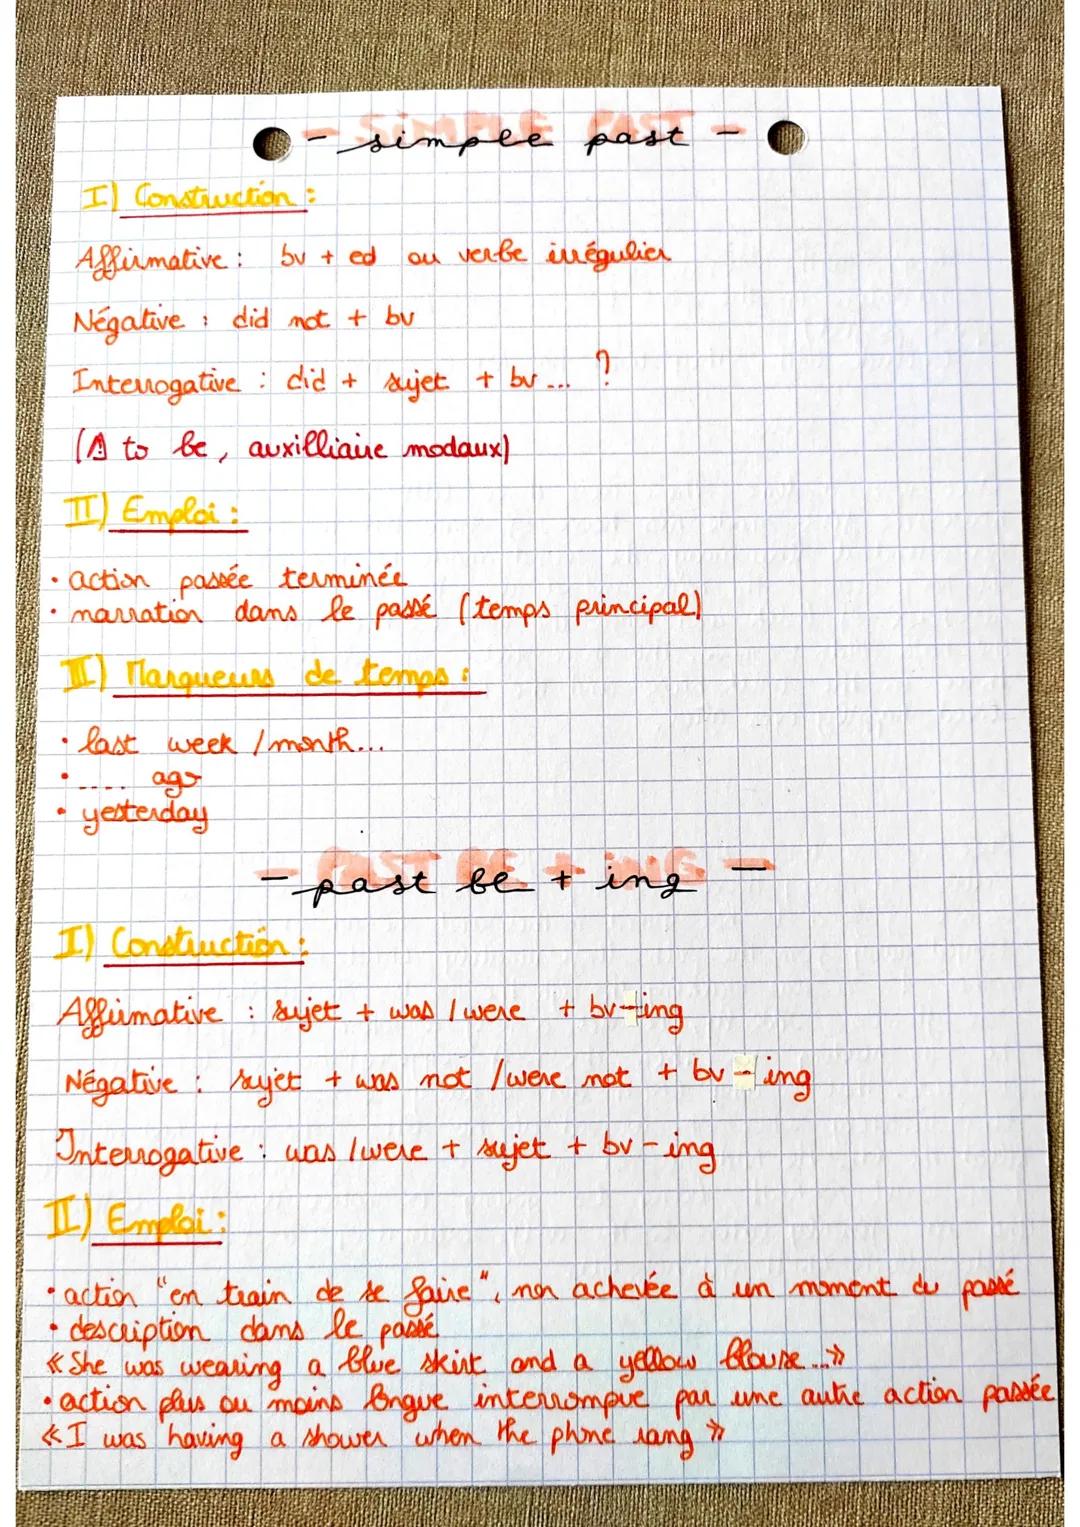 - simple past -
I) Construction :
Affirmative : bv + ed ou verbe irrégulier
Négative : did not + bv
Interrogative : did + sujet + bv ... ?
(⚠ to be, auxilliaire modaux)
II) Emploi :
• action passée terminée
• narration dans le passé (temps principal)
III) Marqueurs de temps :
• last week / month...
• .... ago
• yesterday
- past be + ing -
I) Construction :
Affirmative : sujet + was / were + bv-ing
Négative : sujet + was not / were not + bv - ing
Interrogative : was / were + sujet + bv - ing
II) Emploi :
• action "en train de se faire", non achevée à un moment du passé
• description dans le passé
« She was wearing a blue skirt and a yellow blouse ... »
• action plus ou moins longue interrompue par une autre action passée
« I was having a shower when the phone rang »